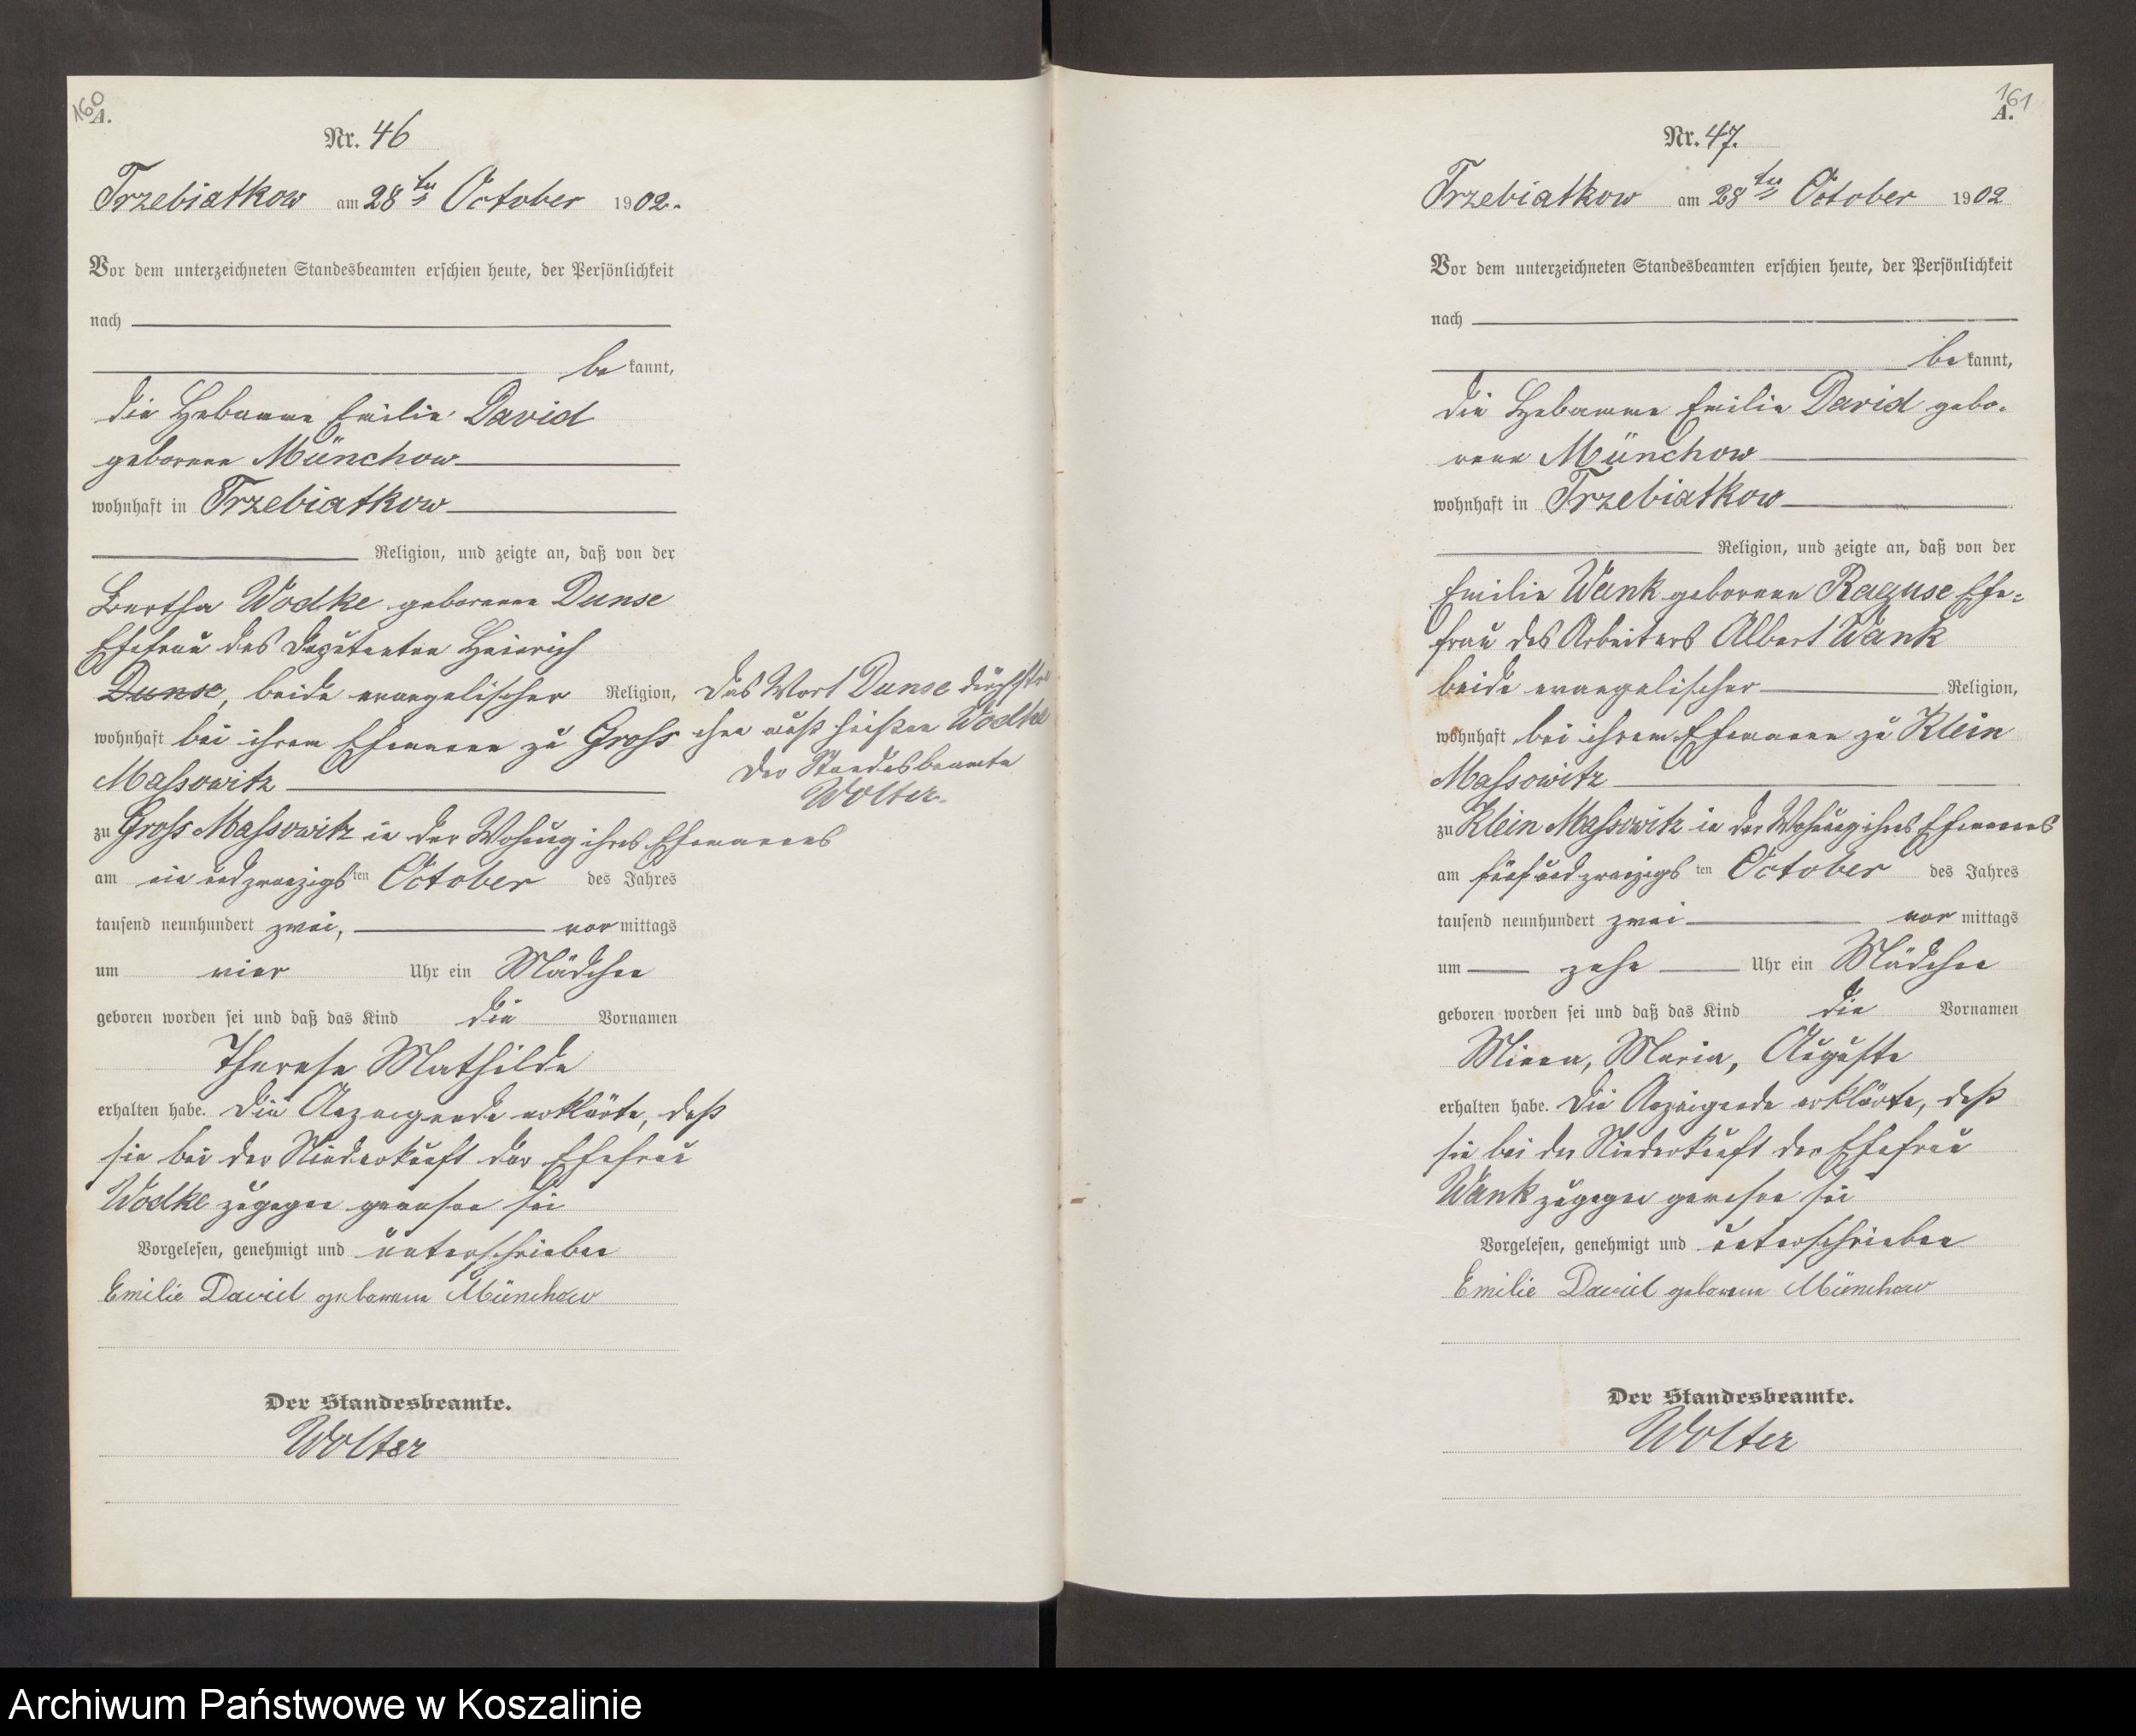 160
A.
Nr. 46
Trzebiatkow am 28ten October 1902.
Vor dem unterzeichneten Standesbeamten erschien heute, der Persönlichkeit
nach
bekannt,
die Hebamme Emilie David
geborene Münchow
wohnhaft in Trzebiatkow
Religion, und zeigte an, daß von der
Bertha Wodke geborenen Dunse
Ehefrau des Deputanten Heinrich
Dunse, beide evangelischer Religion,
wohnhaft bei ihrem Ehemann zu Gross
Massowitz
zu Gross Massowitz in der Wohnung ihres Ehemannes
am ein und zwanzigsten October des Jahres
tausend neunhundert zwei, vormittags
um vier Uhr ein Mädchen
geboren worden sei und daß das Kind die Vornamen
Therese Mathilde
erhalten habe. Die Anzeigende erklärte, daß
sie bei der Niederkunft der Ehefrau
Wodke zugegen gewesen sei
Vorgelesen, genehmigt und unterschrieben
Emilie David geborene Münchow
Der Standesbeamte.
Wolter
Das Wort Dunse durchstri
chen muß heißen Wodke
Der Standesbeamte
Wolter.
161
A.
Nr. 47.
Trzebiatkow am 28ten October 1902
Vor dem unterzeichneten Standesbeamten erschien heute, der Persönlichkeit
nach
bekannt,
die Hebamme Emilie David gebo-
rene Münchow
wohnhaft in Trzebiatkow
Religion, und zeigte an, daß von der
Emilie Wank geborenen Raguse Ehe-
frau des Arbeiters Albert Wank
beide evangelischer Religion,
wohnhaft bei ihrem Ehemann zu Klein
Massowitz
zu Klein Massowitz in der Wohnung ihres Ehemannes
am fünf und zwanzigsten October des Jahres
tausend neunhundert zwei vormittags
um zehn Uhr ein Mädchen
geboren worden sei und daß das Kind die Vornamen
Minna, Maria, Auguste
erhalten habe. Die Anzeigende erklärte, daß
sie bei der Niederkunft der Ehefrau
Wank zugegen gewesen sei
Vorgelesen, genehmigt und unterschrieben
Emilie David geborene Münchow
Der Standesbeamte.
Wolter
Archiwum Państwowe w Koszalinie